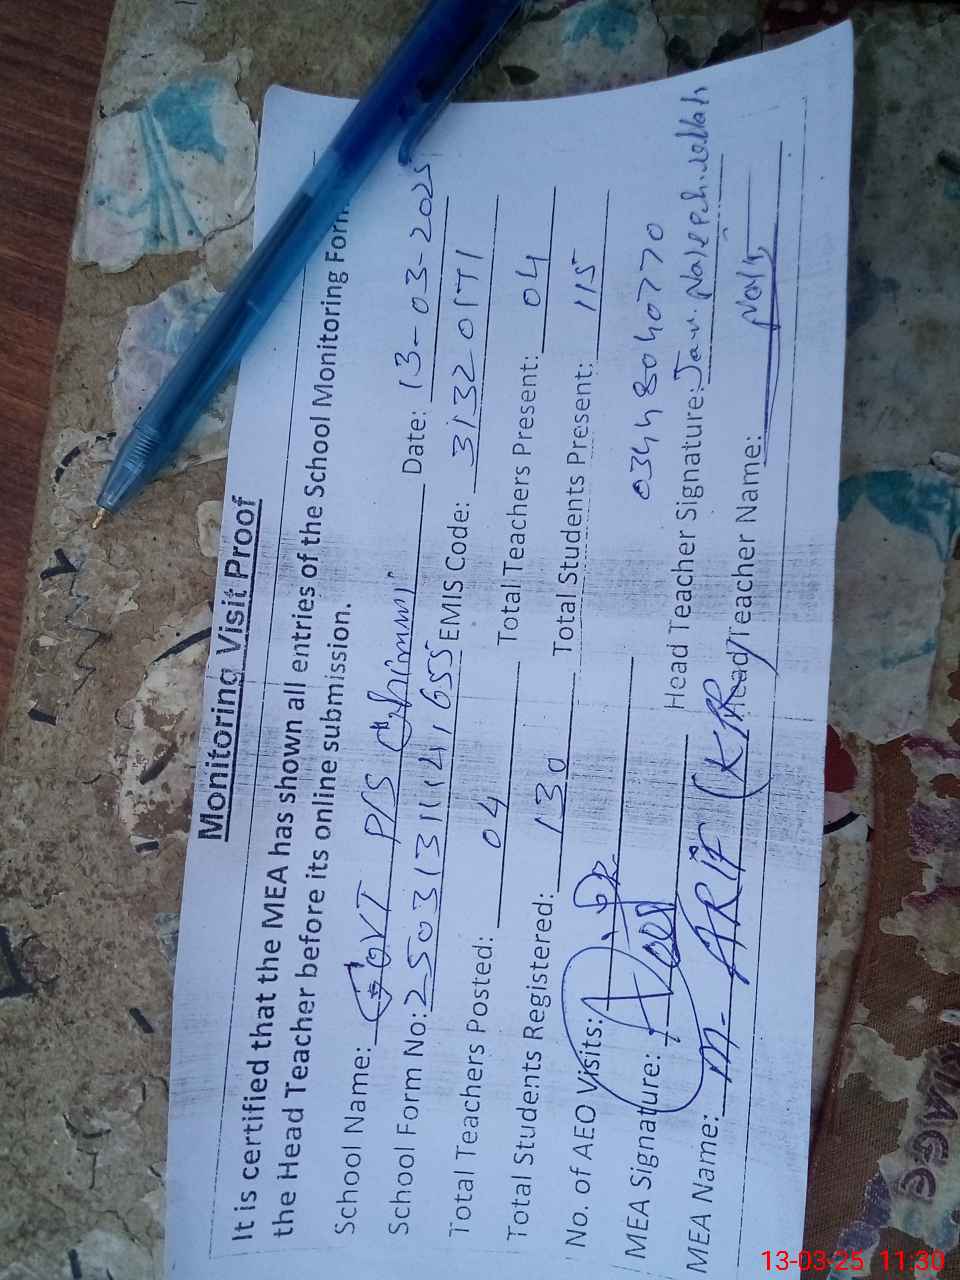 Monitoring Visit Proof
It is certified that the MEA has shown all entries of the School Monitoring Form
the Head Teacher before its online submission.
School Name: GOVT P/S Date: 13-03-2025
School Form No: EMIS Code: 31320171
Total Teachers Posted: 04 Total Teachers Present: 04
Total Students Registered: 130 Total Students Present: 115
No. of AEO Visits: 03448040770
MEA Signature: Head Teacher Signature:
MEA Name: M. ARIF Head/Teacher Name:
13-03-25 11:30